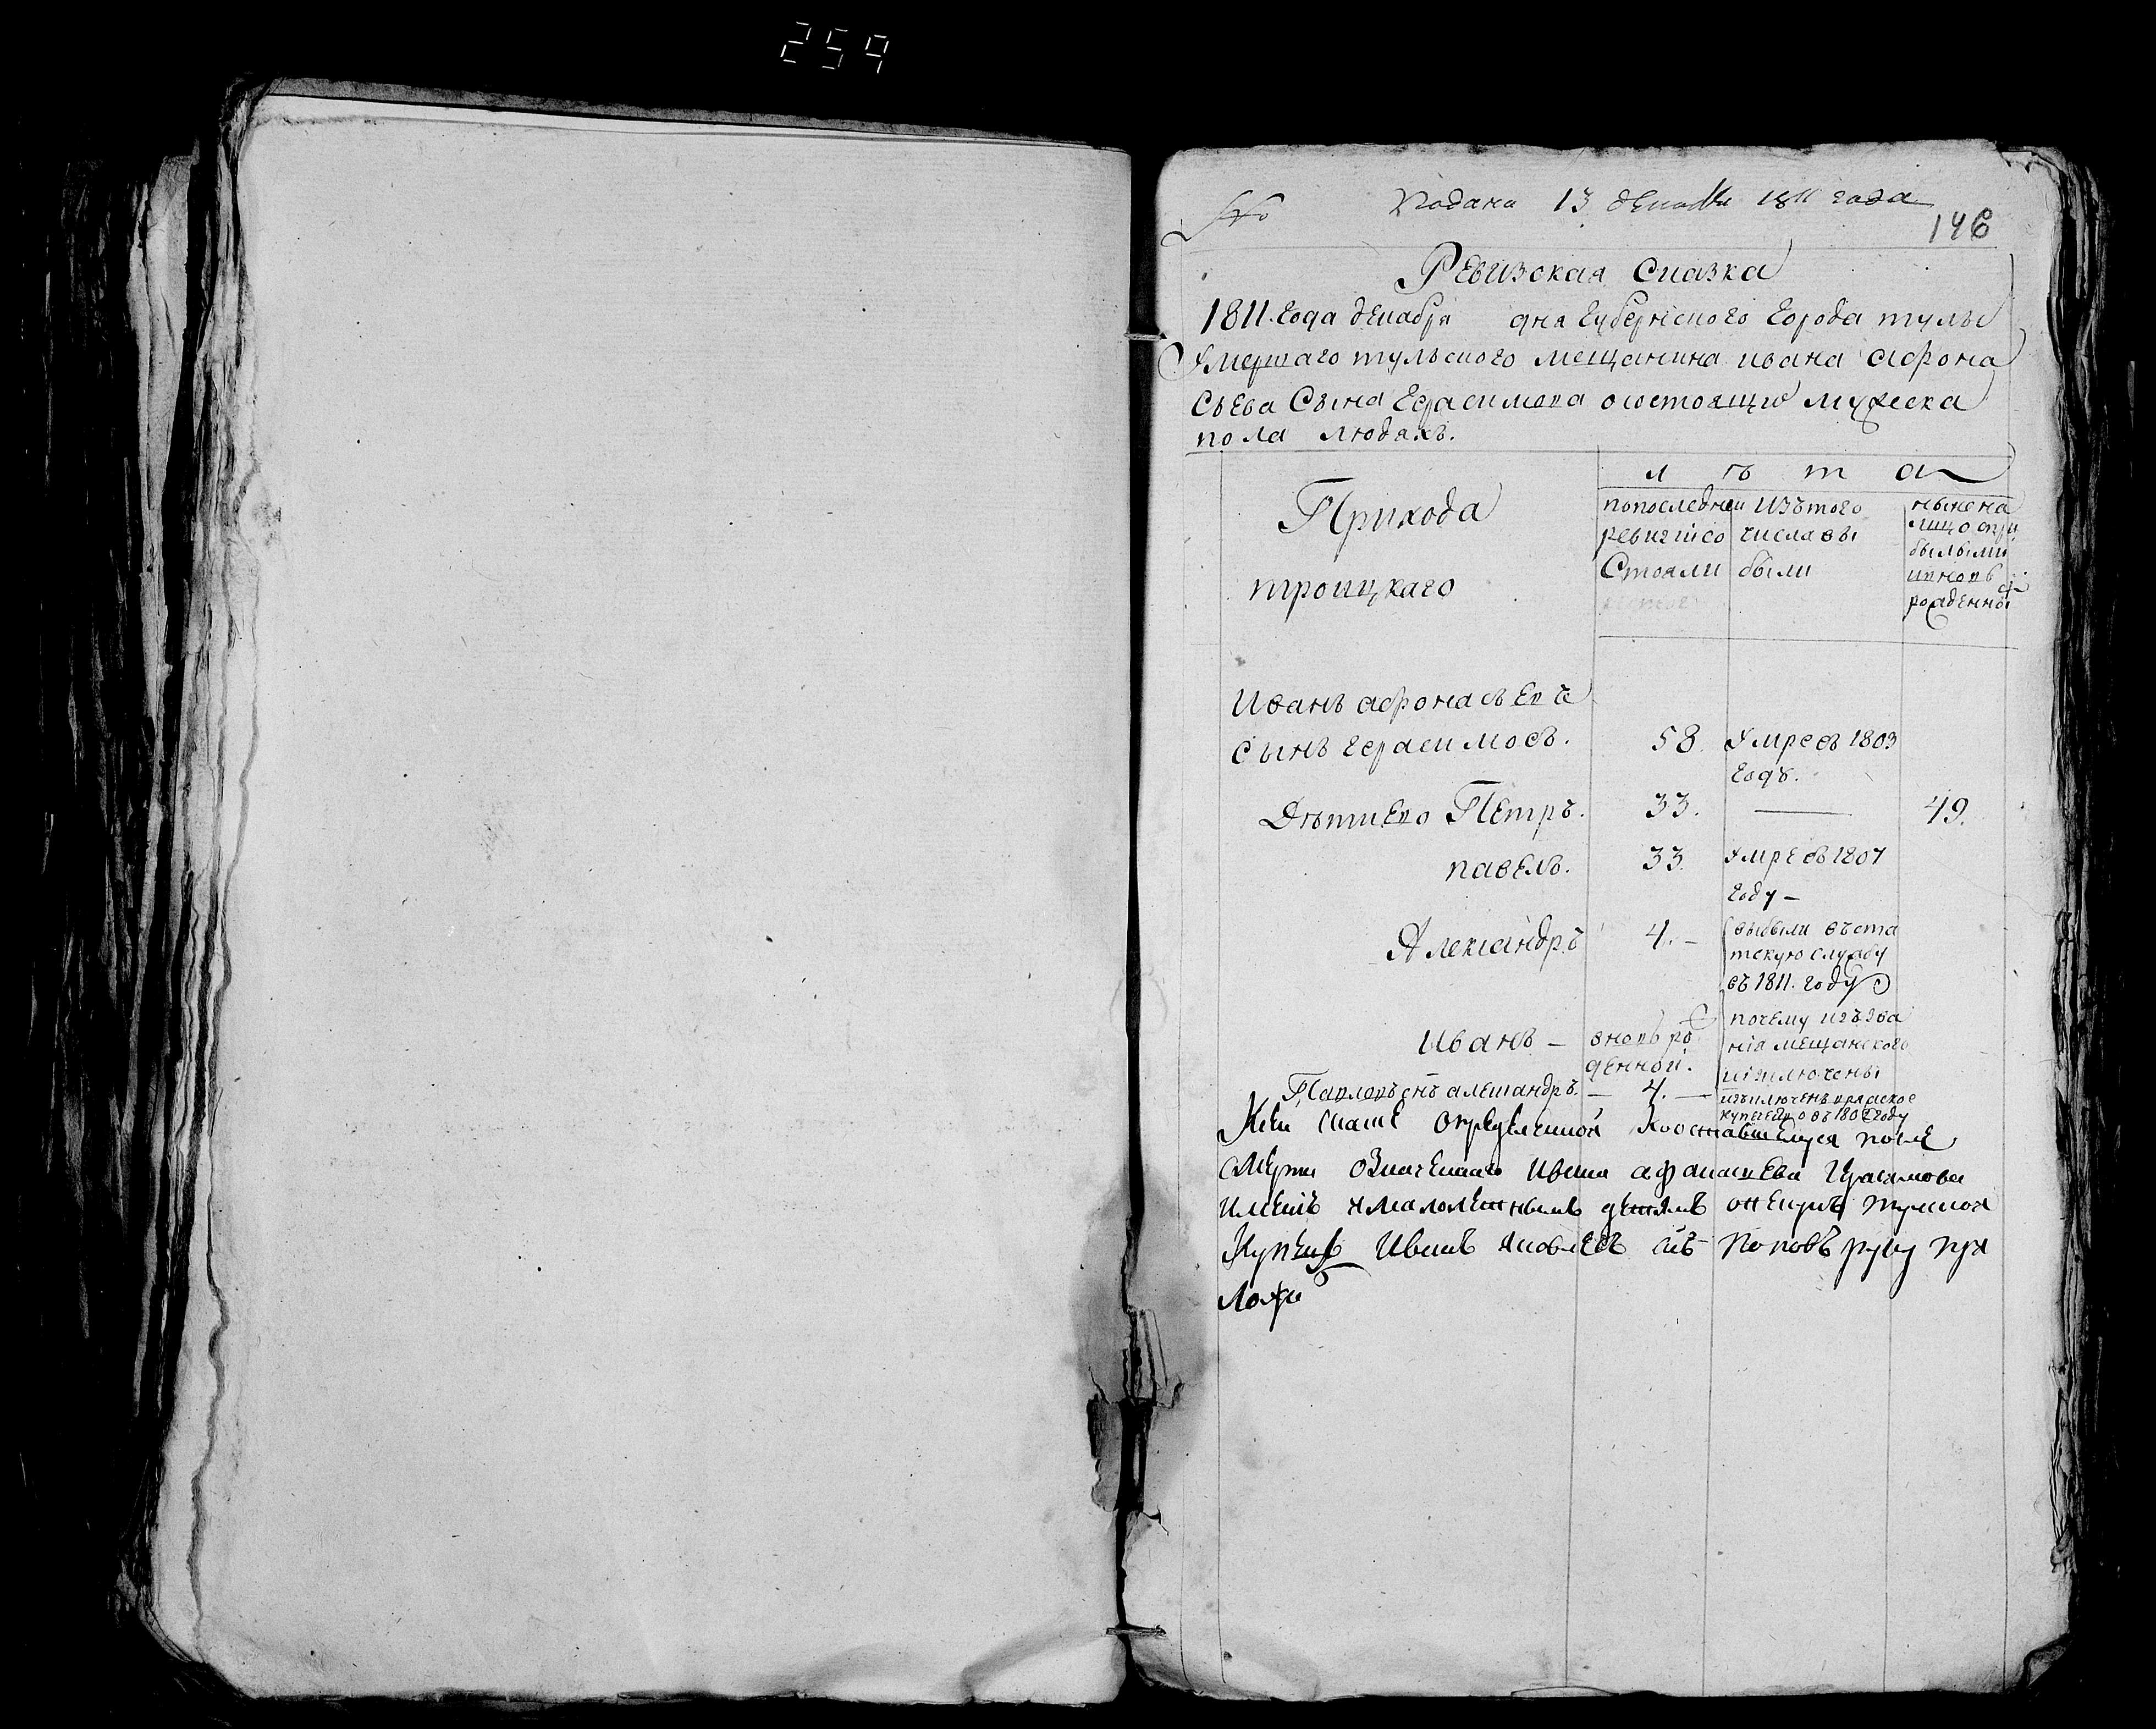 259
№ Подана 13 декабря 1811 года
146
Ревизская Сказка
1811. Года декабря дня Губернского Города тулы
Умершаго тульского мещанина ивана Афона
сьева Сына Герасимова осостоящих мужеска
пола людяхъ.
Прихода
троицкаго
л ѣ т а
попоследней ревизіи Состояли
Изътого числа выбыли
ныне на лицо сприбылыми ивновь рожденной
Иванъ афонасьевъ
сынъ герасимовъ. 58. Умре въ 1803
Годѣ.
Дѣти Ево Петръ. 33. — 49.
павелъ. 33. Умре въ 1807
Году –
Александръ 4. – выбыли въста
тскую службу
въ 1811. году
Иванъ – вновь ро
денной.
почему изъ зва
нія мещанского
изключены
Павловъ снъ александръ. – 4. –
изъключенъ
купечество въ 180 году
Ксей скаске определенной кооставшемуся после
смерти означенаго Ивана афанасьева Герасимова
имению ималолетнымъ детямъ опекунъ тулской
Купецъ Иванъ яковлевъ снъ Поповъ руку при
ложи